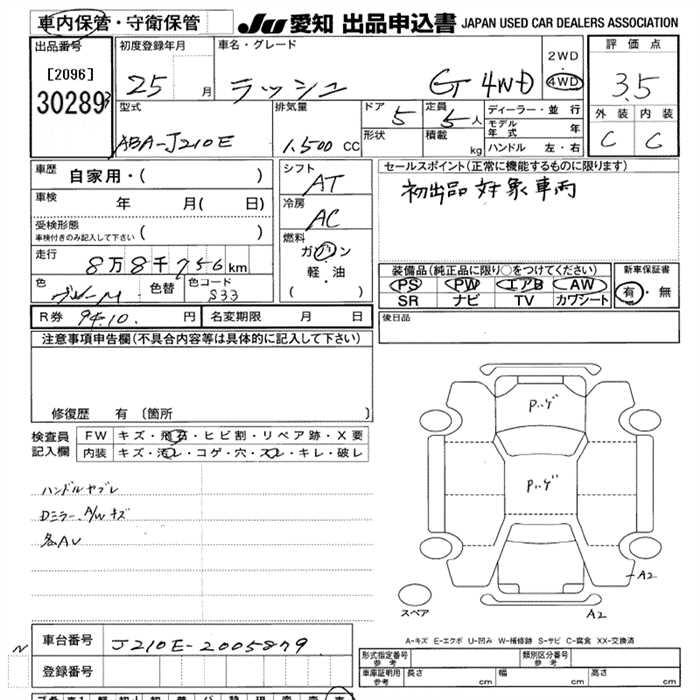 車内保管・守衛保管
JU 愛知 出品申込書 JAPAN USED CAR DEALERS ASSOCIATION
出品番号 初度登録年月 車名・グレード 2WD 評価点
[2096] 25 月 ラッシュ GT 4WD 4WD 3.5
30289
型式 排気量 ドア 5 定員 5人 ディーラー・並行 外装 内装
ABA-J210E 1.500 CC 形状 積載 kg モデル年式 年 C C
ハンドル 左・右
車歴 自家用・( ) シフト AT セールスポイント(正常に機能するものに限ります)
車検 年 月( 日) 冷房 AC 初出品 対象車両
受検形態 ( )
車検付きのみ記入して下さい
燃料 ガソリン
走行 8万8千756km 軽・油
装備品(純正品に限り○をつけてください) 新車保証書
色 色替 色コード S33 ( ) PS PW エアB AW 有・無
SR ナビ TV カワシート
R券 9410. 円 名変期限 月 日 後日品
注意事項申告欄(不具合内容等は具体的に記入して下さい)
修復歴 有 [箇所
検査員記入欄 FW キズ・飛石・ヒビ割・リペア跡・X要
内装 キズ・汚レ・コゲ・穴・スレ・キレ・破レ
ハンドルヤブレ
Dミラー、A/Wキズ
各AU
P.ゲ
P.ゲ
A2
A2
スペア
A-キズ E-エクボ U-凹み W-補修跡 S-サビ C-腐食 XX-交換済
N 車台番号 J210E-2005879
登録番号
形式指定番号 参考 類別区分番号 参考
車庫証明用 参考 長さ cm 幅 cm 高さ cm